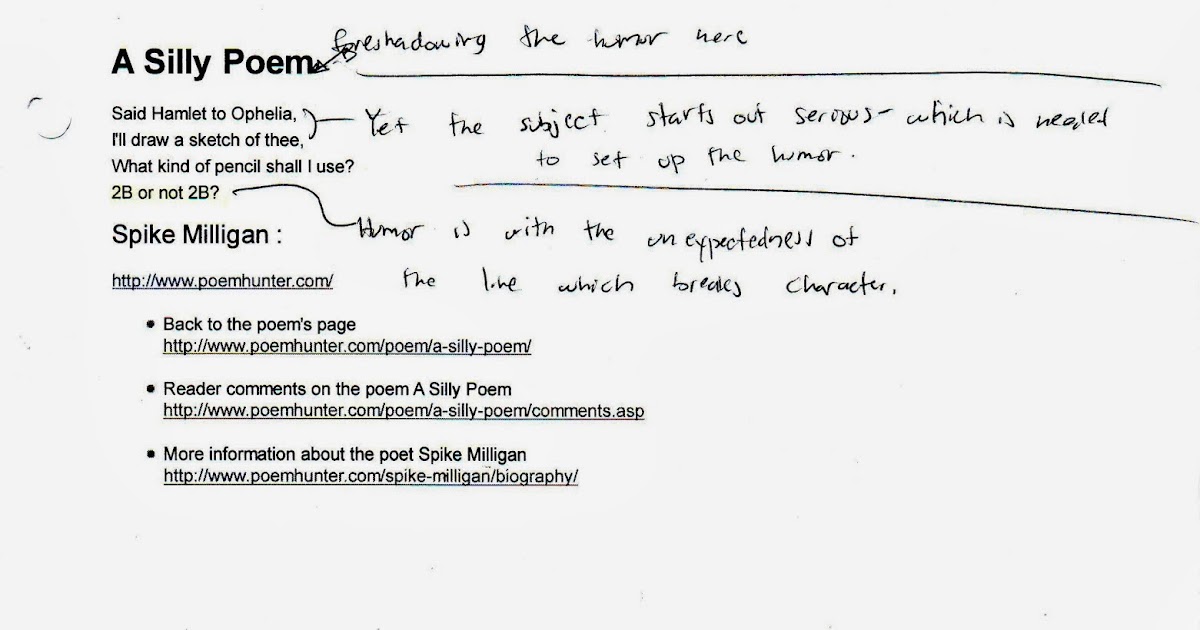 foreshadowing the humor here
A Silly Poem
Said Hamlet to Ophelia,
I'll draw a sketch of thee,
Yet the subject starts out serious- which is needed
to set up the humor.
What kind of pencil shall I use?
2B or not 2B?
Spike Milligan :
Humor is with the unexpectedness of
the line which breaks character.
http://www.poemhunter.com/
• Back to the poem's page
http://www.poemhunter.com/poem/a-silly-poem/
• Reader comments on the poem A Silly Poem
http://www.poemhunter.com/poem/a-silly-poem/comments.asp
• More information about the poet Spike Milligan
http://www.poemhunter.com/spike-milligan/biography/